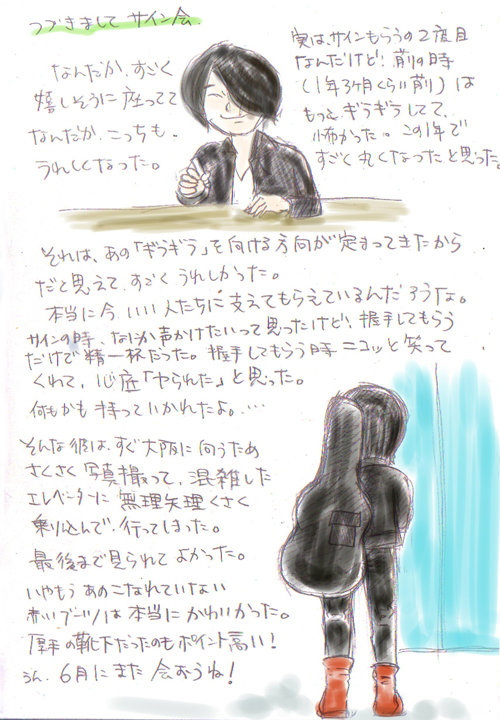 つづきまして サイン会
なんだか、すごく
嬉しそうに座ってて
なんだか、こっちも、
うれしくなった。
実は、サインもらうの2度目
なんだけど、前の時
(1年3ヶ月くらい前)は
もっとギラギラしてて、
怖かった。この1年で
すごく丸くなったと思った。
それは、あの「ギラギラ」を向ける方向が定まってきたから
だと思えて、すごくうれしかった。
本当に今、いい人たちに支えてもらえているんだろうな。
サインの時、なにか声かけたいって思ったけど、握手してもらう
だけで精一杯だった。握手してもらう時ニコッと笑って
くれて、心底「やられた」と思った。
何もかも持っていかれたよ。…
そんな彼は、すぐ大阪に向うため
さくさく写真撮って、混雑した
エレベーターに無理矢理くさく
乗り込んで、行ってしまった。
最後まで見られてよかった。
いやもうあのこなれていない
赤いブーツは本当にかわいかった。
厚手の靴下だったのもポイント高い!
うん、6月にまた会おうね!